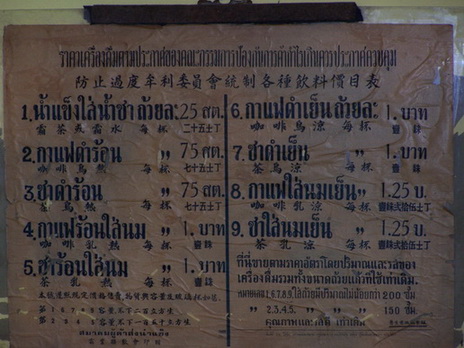 ราคาเครื่องดื่มตามประกาศของคณะกรรมการป้องกันการค้ากำไรเกินควรประกาศควบคุม
防止過度牟利委員會統制各種飲料價目表
1.น้ำแข็งใส่น้ำชา ถ้วยละ 25 สต.
霜茶 每杯 二十五士丁
2.กาแฟดำร้อน ” 75 สต.
咖啡烏熱 每杯 七十五士丁
3.ชาดำร้อน ” 75 สต.
茶烏熱 每杯 七十五士丁
4.กาแฟร้อนใส่นม ” 1. บาท
咖啡乳熱 每杯 壹銖
5.ชาร้อนใส่นม ” 1. บาท
茶乳熱 每杯 壹銖
6.กาแฟดำเย็น ถ้วยละ 1. บาท
咖啡烏涼 每杯 壹銖
7.ชาดำเย็น ” 1. บาท
茶烏涼 每杯 壹銖
8.กาแฟใส่นมเย็น ” 1.25 บ.
咖啡乳涼 每杯 壹銖弍拾伍士丁
9.ชาใส่นมเย็น ” 1.25 บ.
茶乳涼 每杯 壹銖弍拾伍士丁
เครื่องดื่มรวมทั้งขนาดถ้วยแก้วที่ใช้เท่าเดิม.
หมายเลข 1,6,7,8,9, ใช้ถ้วยมีปริมาณไม่น้อยกว่า 200 ซ.ม.
” 2,3,4,5, ” ” 150 ซ.ม.